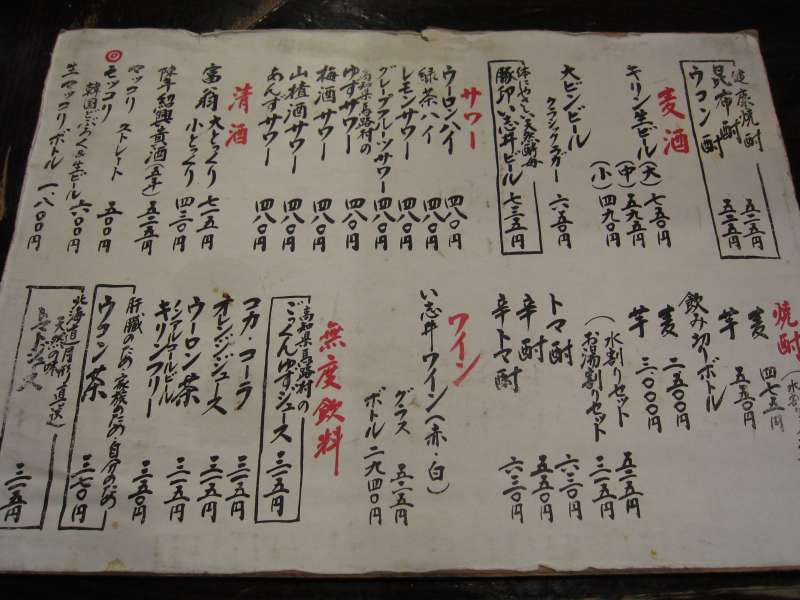 健康焼酎
昆布酎 五二五円
ウコン酎 五二五円
麦酒
キリン生ビール(大) 七五〇円
(中) 五九五円
(小) 四九〇円
大ビンビール
クラシックラガー 六五〇円
体にやさしい天然酵母
豚卯い志井ビール 七三五円
サワー
ウーロンハイ 四八〇円
緑茶ハイ 四八〇円
レモンサワー 四八〇円
グレープフルーツサワー 四八〇円
高知県馬路村の
ゆずサワー 四八〇円
梅酒サワー 四八〇円
山楂酒サワー 四八〇円
あんずサワー 四八〇円
清酒
富翁 大とっくり 七一五円
小とっくり 四三〇円
陳年紹興貴酒(五年) 五二五円
マッコリ ストレート 五〇〇円
モッコリ
韓国どぶろく&生ビール 六〇〇円
生マッコリボトル 一八〇〇円
焼酎(水割り
麦 四七五円
芋 五五〇円
飲み切りボトル
麦 二五〇〇円
芋 三〇〇〇円
(水割りセット 五二五円
お湯割りセット 三一五円
トマ酎 六三〇円
辛酎 五五〇円
辛トマ酎 六三〇円
ワイン
い志井ワイン(赤・白)
グラス 五二五円
ボトル 二九四〇円
無度飲料
高知県馬路村の
ごっくんゆずジュース 三一五円
コカ・コーラ 三一五円
オレンジジュース 三一五円
ウーロン茶 三一五円
ノンアルコールビール
キリンフリー 三五〇円
肝臓のため・家族のため・自分のため
ウコン茶 三七〇円
北海道月形町直送
天然の味
トマトジュース 三一五円